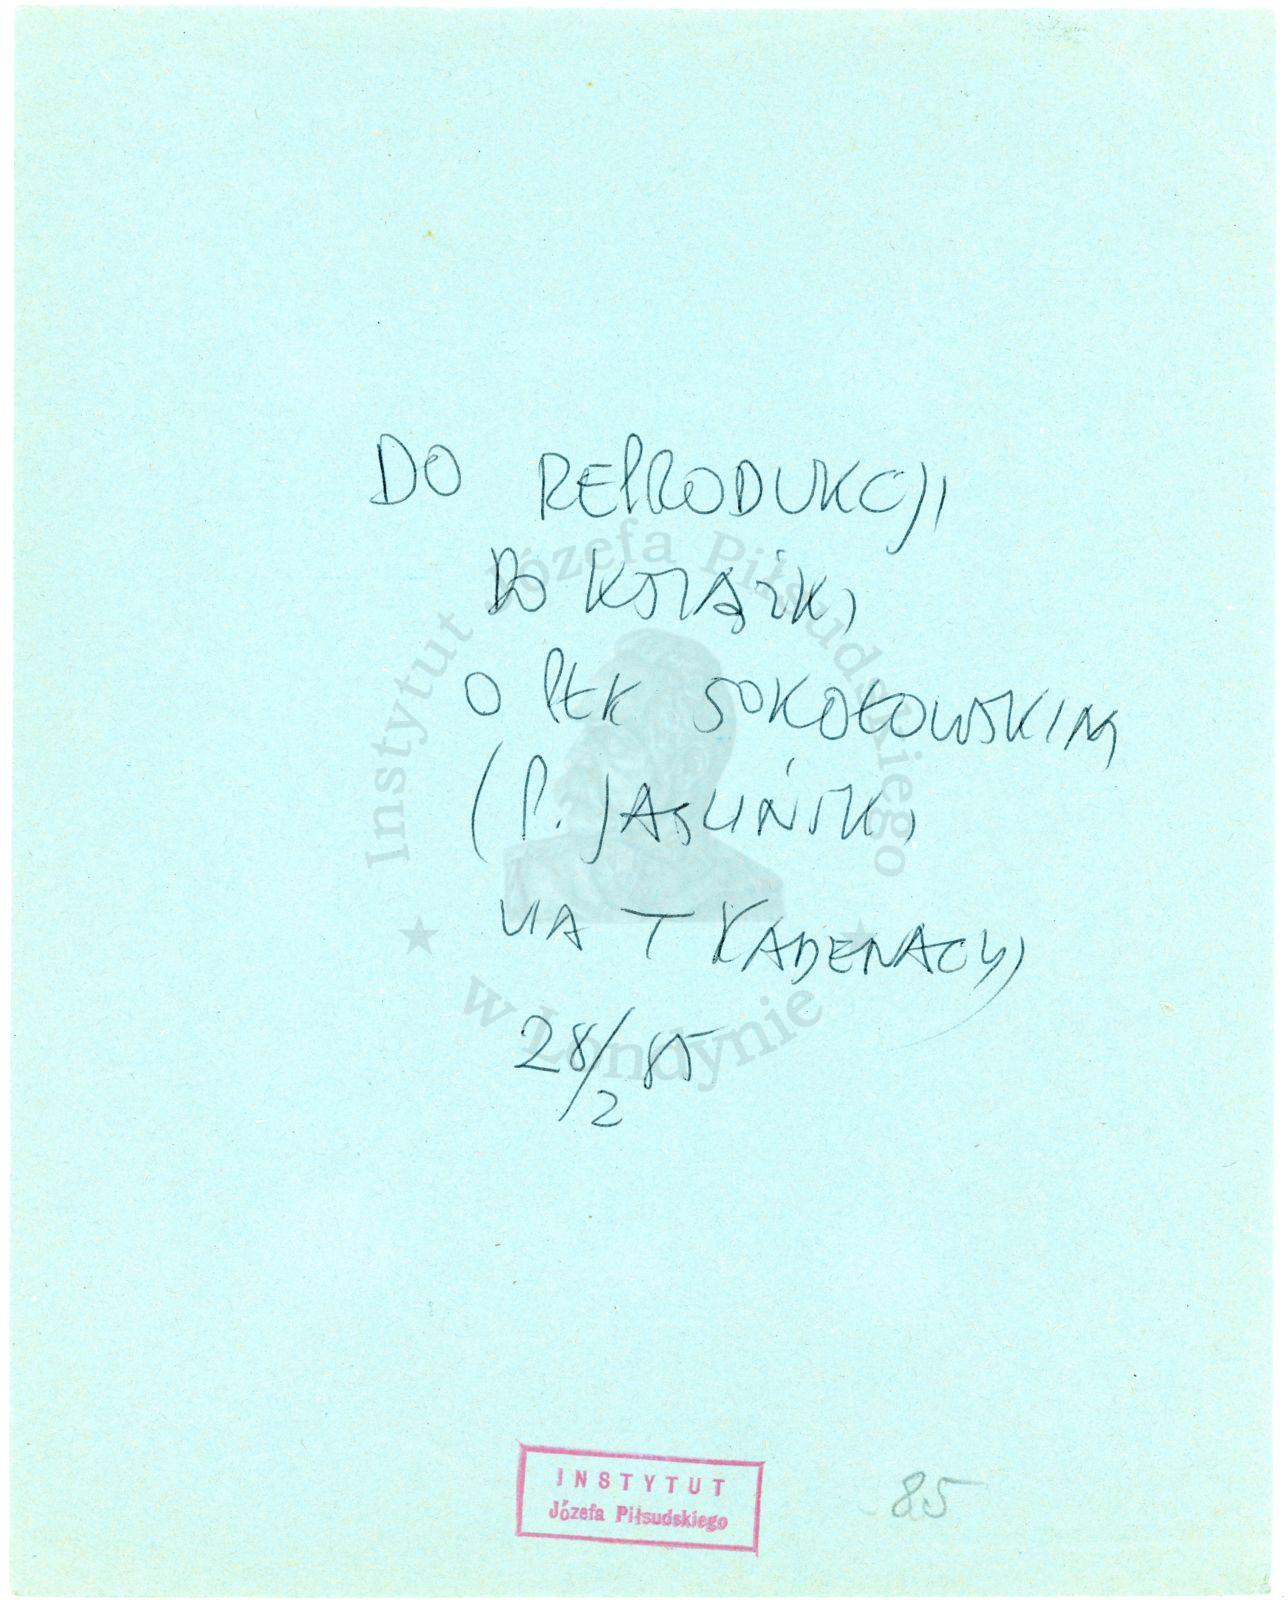 DO REPRODUKCJI
DO KSIĄŻKI
O PŁK SOKOŁOWSKIM
(P. JASLIŃSKI
VIA T KADENACY)
28/2 85
Instytut Józefa Piłsudskiego
w Londynie
INSTYTUT
Józefa Piłsudskiego
85